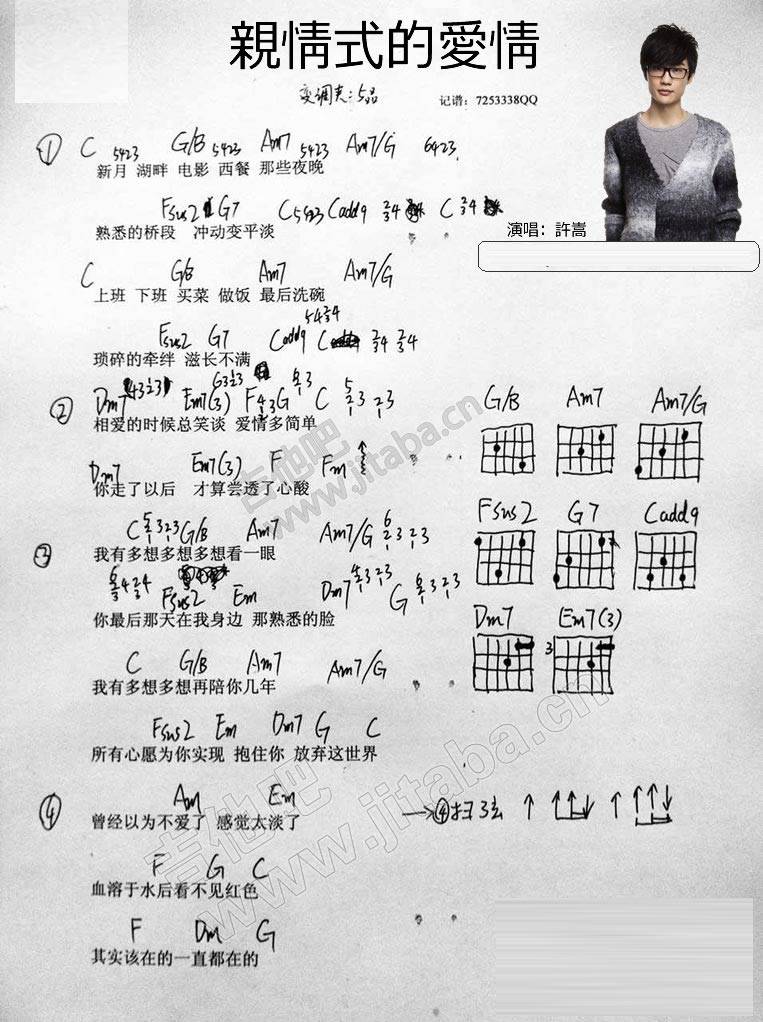 親情式的愛情
变调夹:5品 记谱：7253338QQ
① C 5423 G/B 5423 Am7 5423 Am7/G 6423
新月 湖畔 电影 西餐 那些夜晚
Fsus2 G7 C 5423 Cadd9 C
熟悉的桥段 冲动变平淡
演唱：許嵩
C G/B Am7 Am7/G
上班 下班 买菜 做饭 最后洗碗
Fsus2 G7 Cadd9 C
琐碎的牵绊 滋长不满
② Dm7 Em7(3) F G C
相爱的时候总笑谈 爱情多简单
Dm7 Em7(3) F Fm
你走了以后 才算尝透了心酸
G/B Am7 Am7/G
Fsus2 G7 Cadd9
Dm7 Em7(3)
3
③ C G/B Am7 Am7/G
我有多想多想多想看一眼
Fsus2 Em Dm7 G
你最后那天在我身边 那熟悉的脸
C G/B Am7 Am7/G
我有多想多想再陪你几年
Fsus2 Em Dm7 G C
所有心愿为你实现 抱住你 放弃这世界
④ Am Em
曾经以为不爱了 感觉太淡了
→④扫弦 ↑ ↑↑↓ ↑ ↑↑↓
F G C
血溶于水后看不见红色
F Dm G
其实该在的一直都在的
吉他吧
www.jitaba.cn
吉他吧
www.jitaba.cn